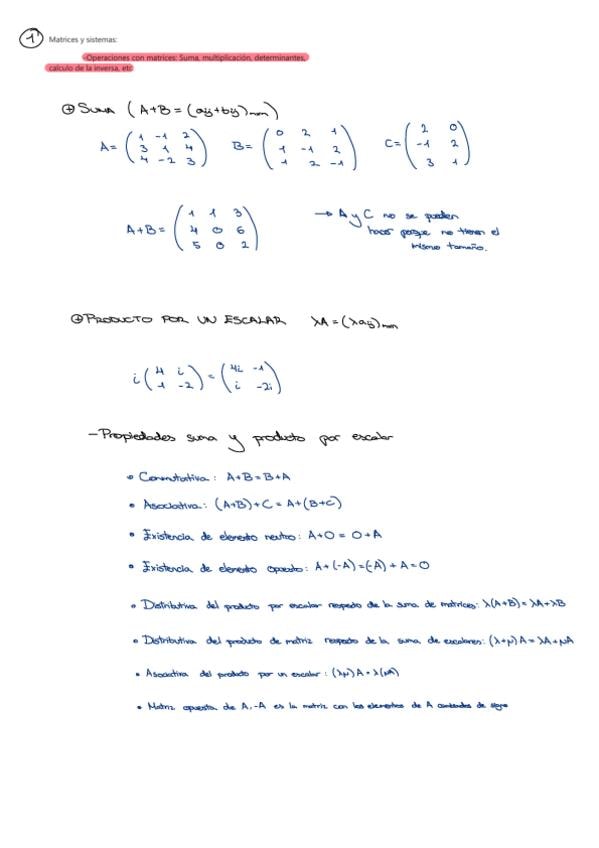 1 Matrices y sistemas:
-Operaciones con matrices: Suma, multiplicación, determinantes,
calculo de la inversa, etc
⊕ SUMA (A+B = (aij+bij)mxn)
A= ( 1 -1 2 B= ( 0 2 1 C= ( 2 0
3 1 4 1 -1 2 -1 2
4 -2 3 ) 1 2 -1 ) 3 1 )
A+B = ( 1 1 3 → A y C no se pueden
4 0 6 hacer porque no tienen el
5 0 2 ) mismo tamaño.
⊕ PRODUCTO POR UN ESCALAR λA = (λaij)mxn
i ( 4 i = ( 4i -1
1 -2 ) i -2i )
- Propiedades suma y producto por escalar
• Conmutativa: A+B=B+A
• Asociativa: (A+B)+C = A+(B+C)
• Existencia de elemento neutro: A+O = O+A
• Existencia de elemento opuesto: A+(-A)=(-A)+A=O
• Distributiva del producto por escalar respecto de la suma de matrices: λ(A+B)=λA+λB
• Distributiva del producto de matriz respecto de la suma de escalares: (λ+μ)A = λA+μA
• Asociativa del producto por un escalar: (λμ)A = λ(μA)
• Matriz opuesta de A, -A es la matriz con los elementos de A cambiados de signo